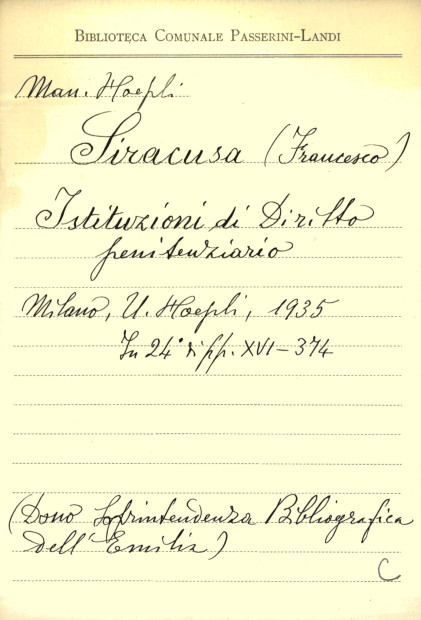 Biblioteca Comunale Passerini-Landi
Man. Hoepli
Siracusa (Francesco)
Istituzioni di Diritto
penitenziario
Milano, U. Hoepli, 1935
In 24° di pp. XVI-374
(Dono Soprintendenza Bibliografica
dell'Emilia)
C